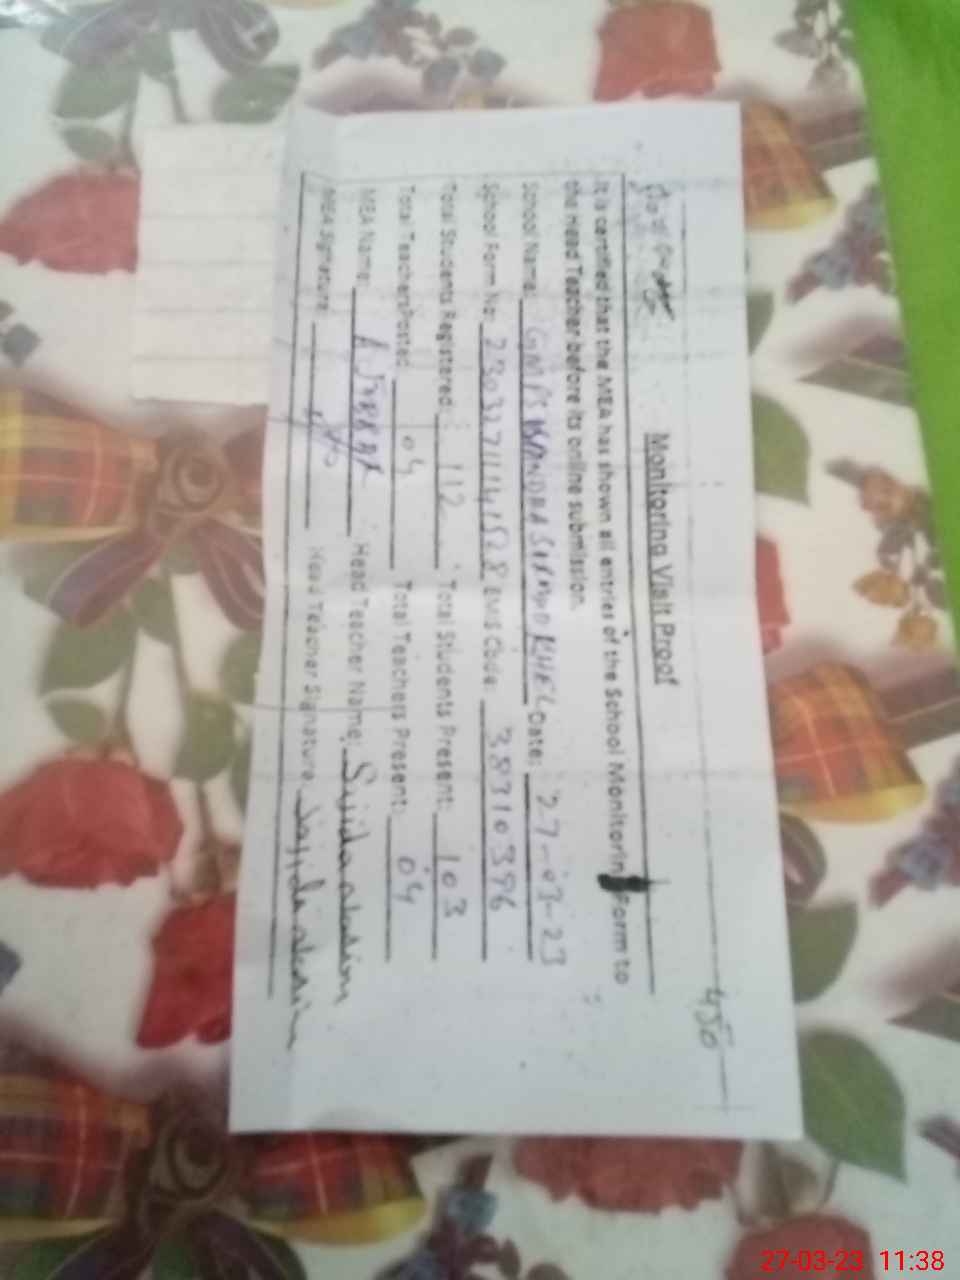 450
Monitoring Visit Proof
It is certified that the MEA has shown all entries of the School Monitoring Form to
the Head Teacher before its online submission.
School Name: GMPS KHEL Date: 27-03-23
School Form No: EMIS Code: 38310396
Total Students Registered: 112 Total Students Present: 103
Total Teachers Posted: 04 Total Teachers Present: 04
MEA Name: A JABBAR Head Teacher Name:
MEA Signature Head Teacher Signature
27-03-23 11:38